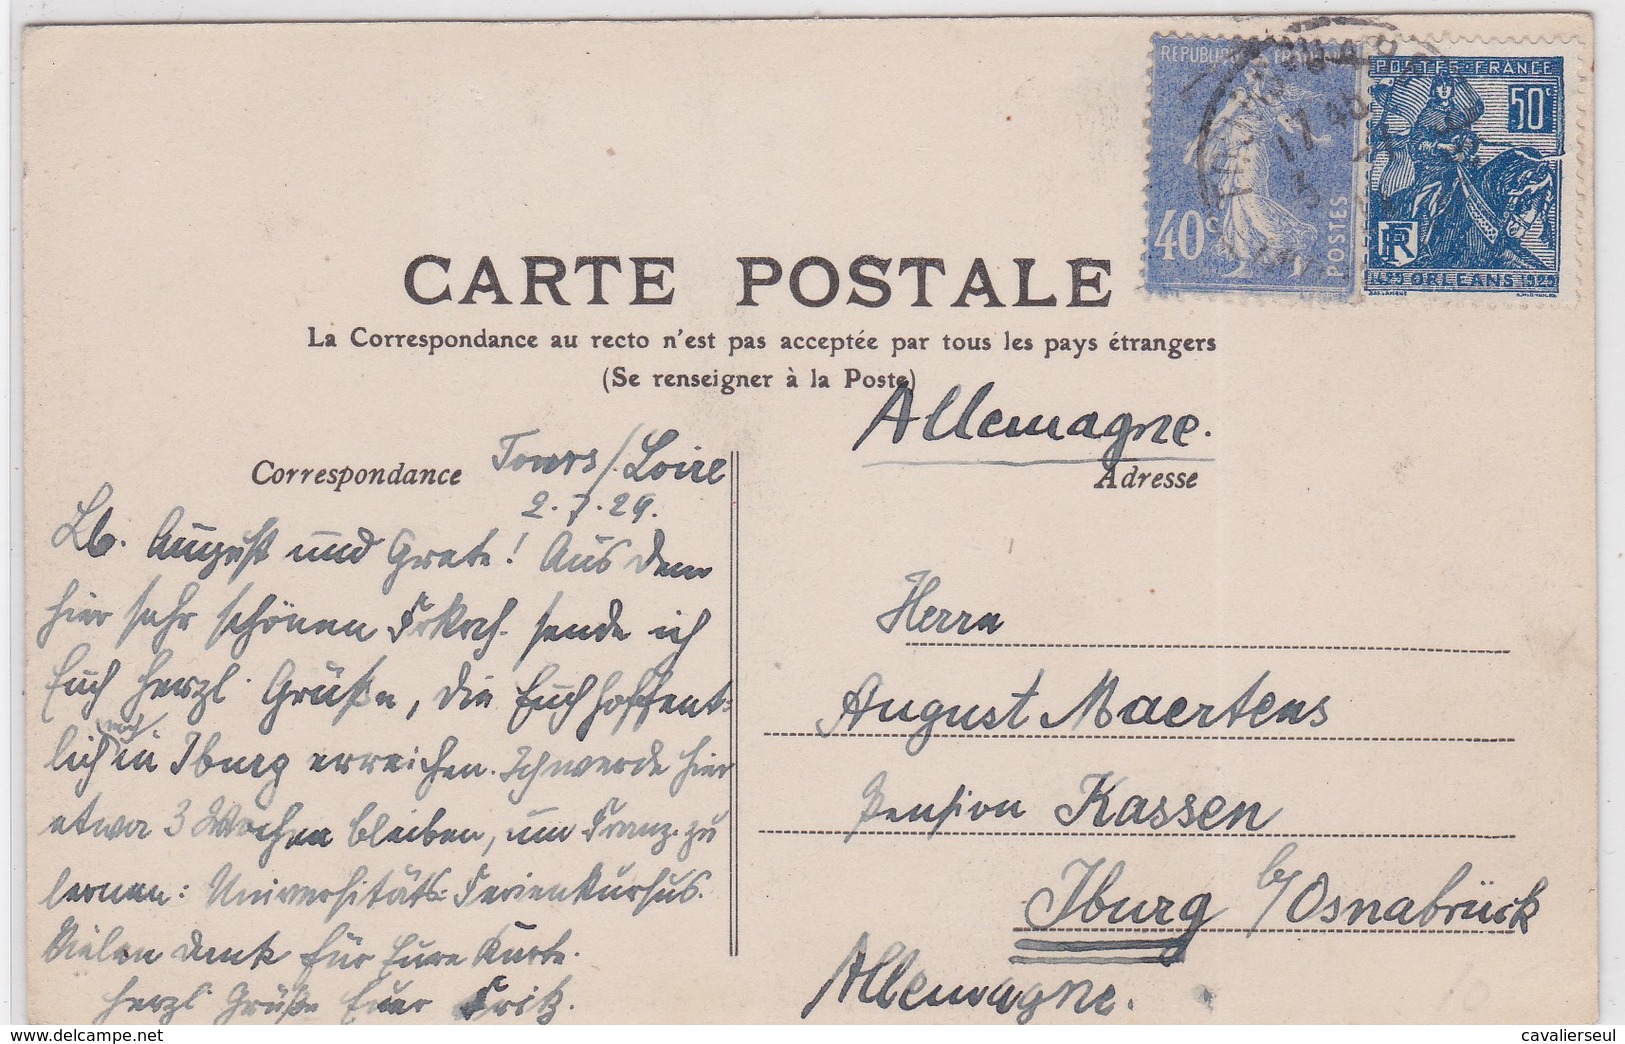 REPUBLIQUE FRANÇAISE
40c
POSTES
POSTES · FRANCE
50c
RF
1429 ORLEANS 1929
CARTE POSTALE
La Correspondance au recto n'est pas acceptée par tous les pays étrangers
(Se renseigner à la Poste)
Allemagne.
Correspondance
Adresse
Tours/Loire
2.7.29.
Lb. August und Grete! Aus dem
hier sehr schönen Frkrch. sende ich
Euch herzl. Grüße, die Euch hoffent-
lich noch in Iburg erreichen. Ich werde hier
etwa 3 Wochen bleiben, um Franz. zu
lernen: Universitäts-Ferienkursus.
Vielen Dank für Eure Karte.
Herzl. Grüße Euer Fritz.
Herrn
August Maertens
Pension Kassen
Iburg b/Osnabrück
Allemagne.
www.delcampe.net
cavalierseul